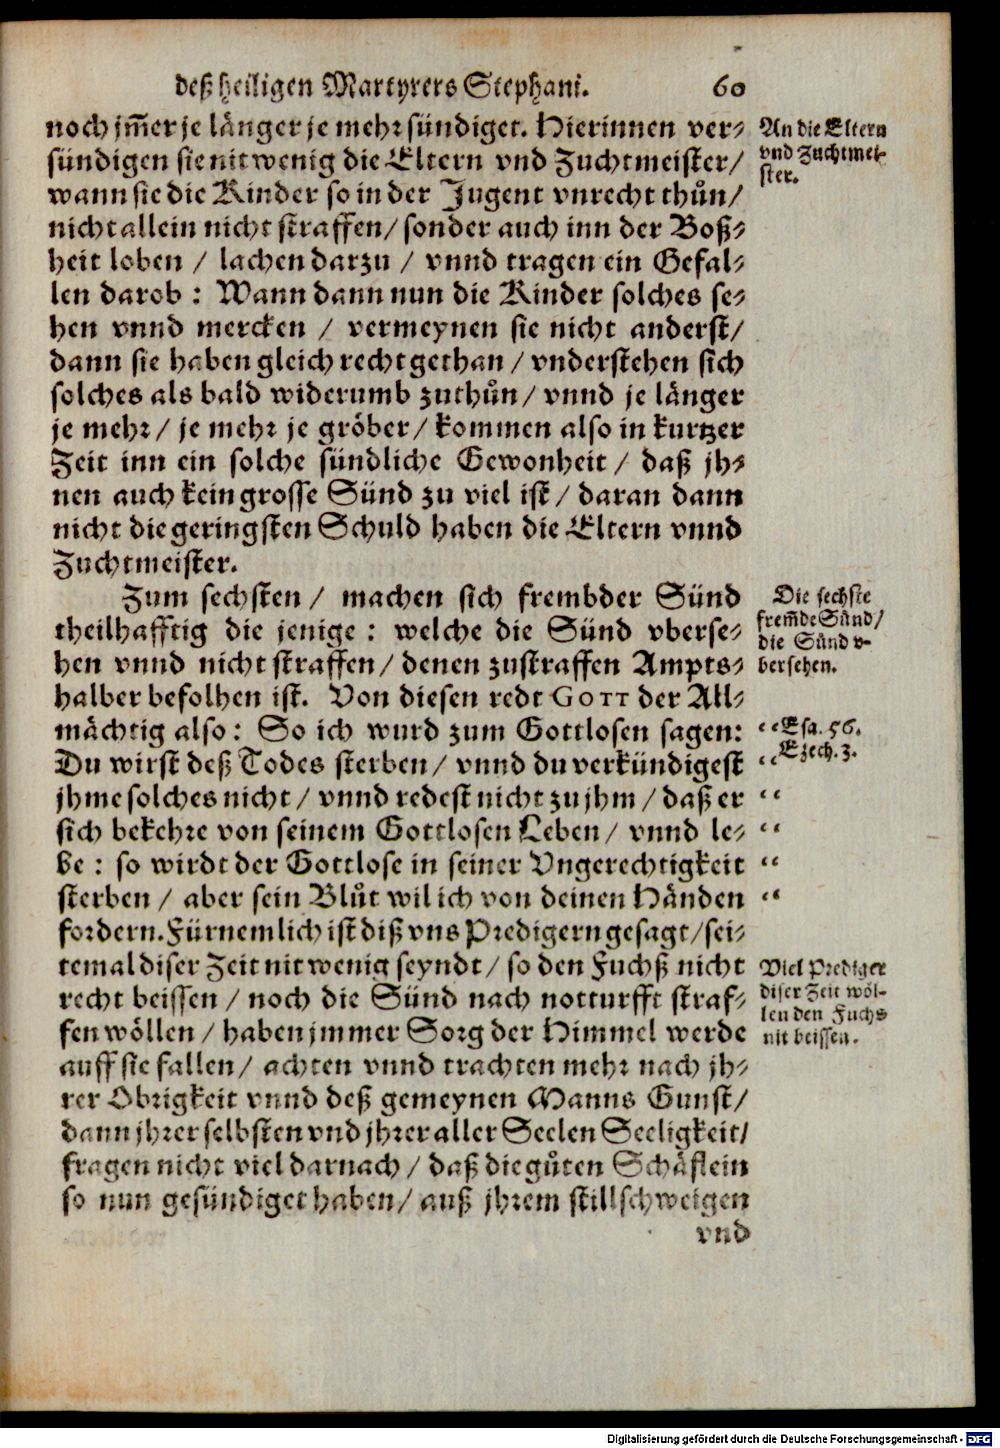 deß heiligen Martyrers Stephani. 60
noch jm̃er je länger je mehr sündiget. Hierinnen ver-
sündigen sie nit wenig die Eltern vnd Zuchtmeister/
wann sie die Kinder so in der Jugent vnrecht thůn/
nicht allein nicht straffen/ sonder auch inn der Boß-
heit loben / lachen darzu / vnnd tragen ein Gefal-
len darob : Wann dann nun die Kinder solches se-
hen vnnd mercken / vermeynen sie nicht anderst/
dann sie haben gleich recht gethan / vnderstehen sich
solches als bald widerumb zuthůn / vnnd je länger
je mehr / je mehr je gröber / kommen also in kurtzer
Zeit inn ein solche sündliche Gewonheit / daß jh-
nen auch kein grosse Sünd zu viel ist / daran dann
nicht die geringsten Schuld haben die Eltern vnnd
Zuchtmeister.
Zum sechsten / machen sich frembder Sünd
theilhafftig die jenige : welche die Sünd vberse-
hen vnnd nicht straffen / denen zustraffen Ampts-
halber befolhen ist. Von diesen redt GOTT der All-
mächtig also : So ich wurd zum Gottlosen sagen:
Du wirst deß Todes sterben / vnnd du verkündigest
jhme solches nicht / vnnd redest nicht zu jhm / daß er
sich bekehre von seinem Gottlosen Leben / vnnd le-
be : so wirdt der Gottlose in seiner Vngerechtigkeit
sterben / aber sein Blůt wil ich von deinen Händen
fordern. Fürnemlich ist diß vns Predigern gesagt / sei-
temal diser Zeit nit wenig seyndt / so den Fuchß nicht
recht beissen / noch die Sünd nach notturfft straf-
fen wöllen / haben jmmer Sorg der Himmel werde
auff sie fallen / achten vnnd trachten mehr nach jh-
rer Obrigkeit vnnd deß gemeynen Manns Gunst/
dann jhrer selbsten vnd jhrer aller Seelen Seeligkeit/
fragen nicht viel darnach / daß die gůten Schäflein
so nun gesündiget haben / auß jhrem stillschweigen
vnd
An die Eltern
vnd Zuchtmei-
ster.
Die sechste
frem̃de Sünd/
die Sünd v-
bersehen.
“Esa. 56.
“Ezech. 3.
“
“
“
“
Viel Prediger
diser Zeit wöl-
len den Fuchs
nit beissen.
Digitalisierung gefördert durch die Deutsche Forschungsgemeinschaft - DFG